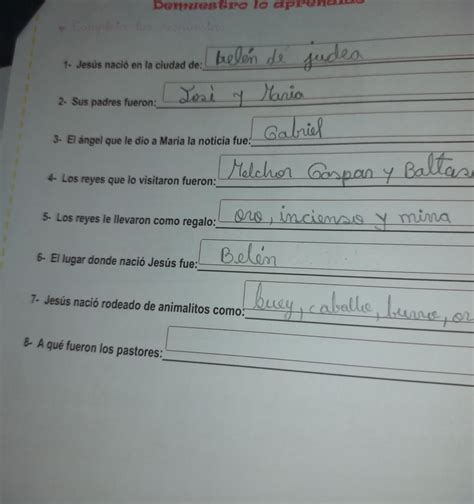 Demuestro lo aprendido
Completa las respuestas
1- Jesús nació en la ciudad de: Belén de judea
2- Sus padres fueron: José y Maria
3- El ángel que le dio a Maria la noticia fue: Gabriel
4- Los reyes que lo visitaron fueron: Melchor Gaspar y Baltas
5- Los reyes le llevaron como regalo: oro, incienso y mirra
6- El lugar donde nació Jesús fue: Belén
7- Jesús nació rodeado de animalitos como: buey, caballo, burro, o
8- A qué fueron los pastores: